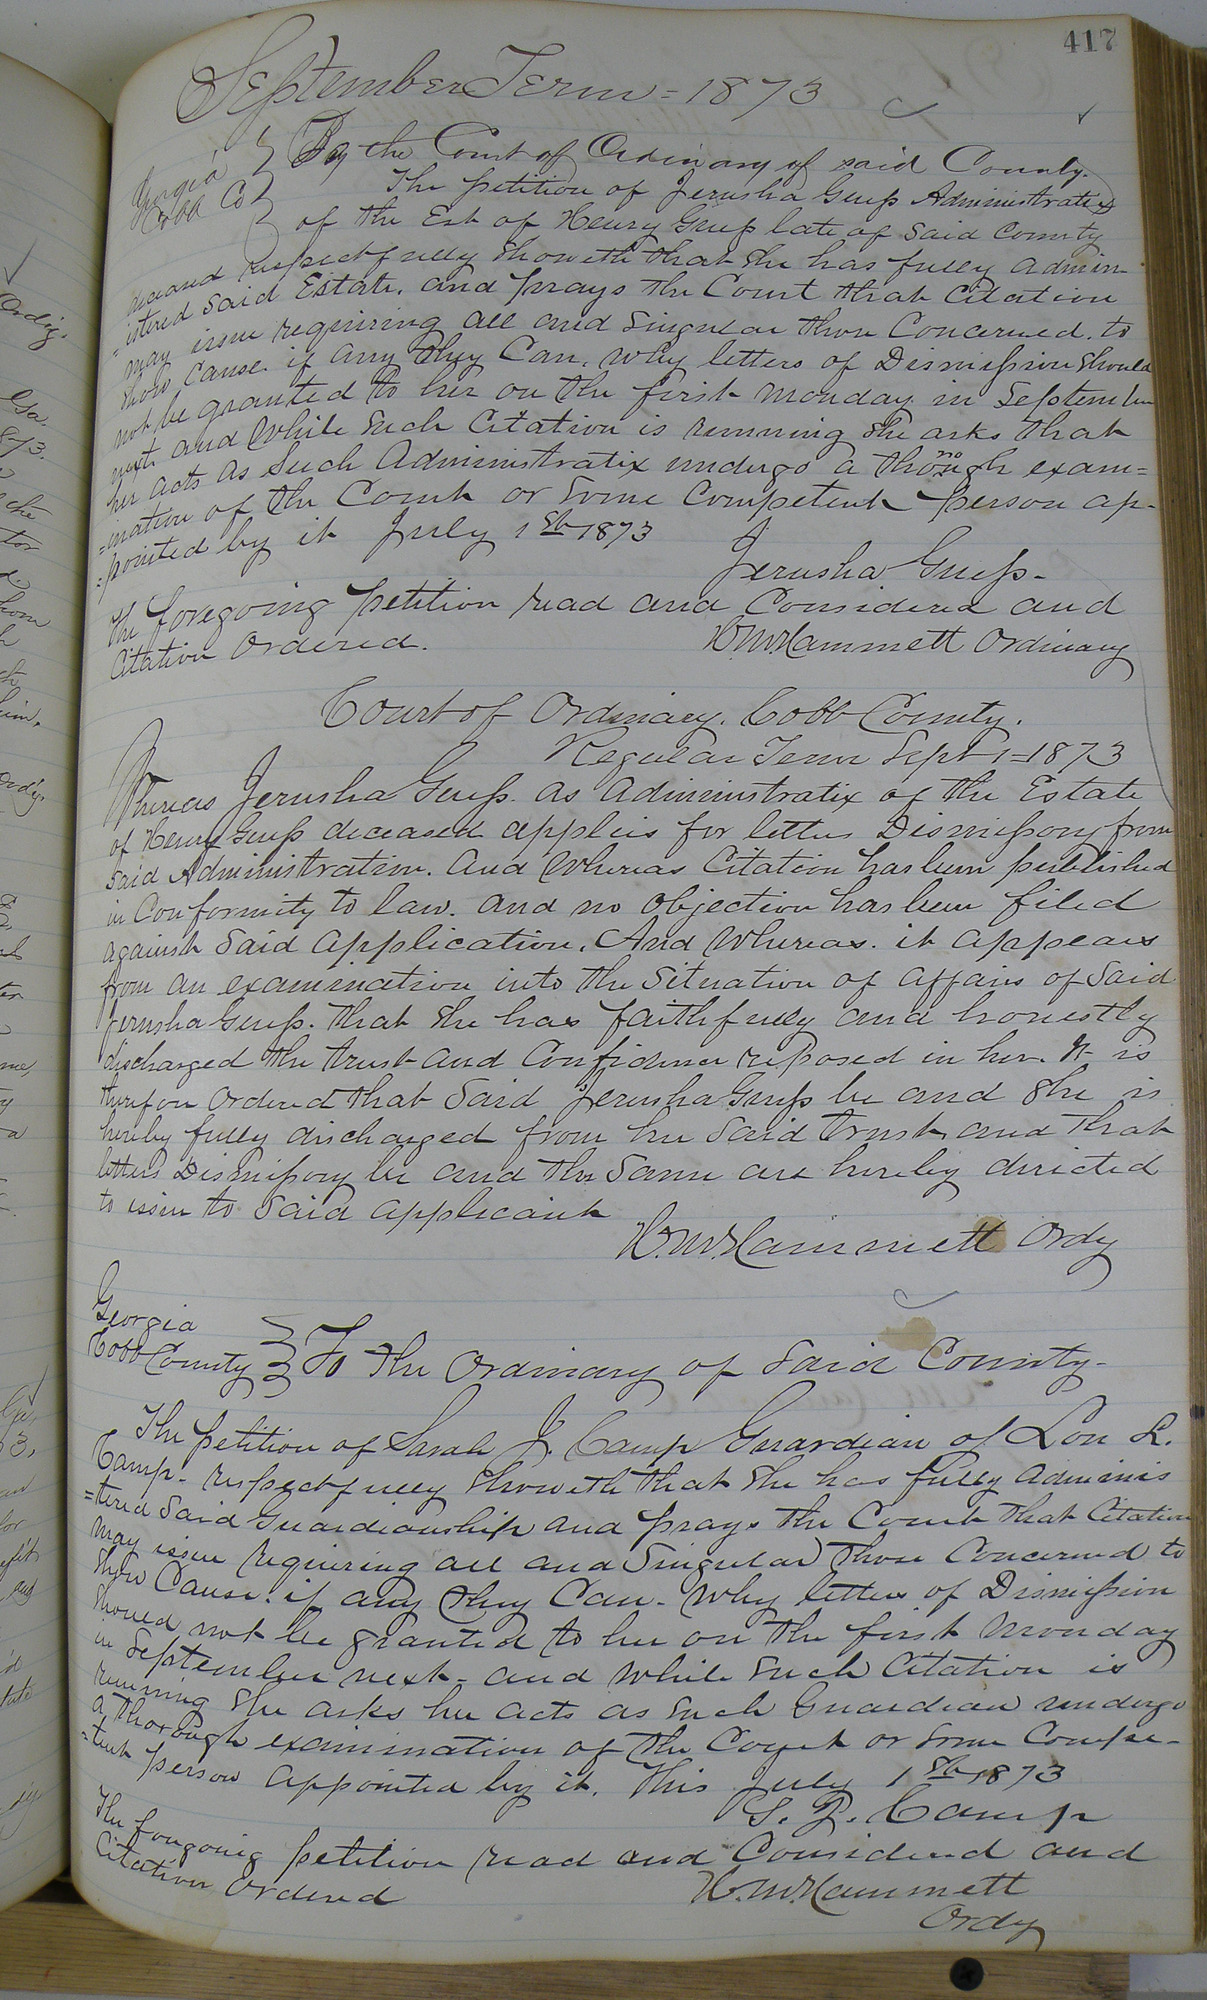 417
September Term = 1873
Georgia
Cobb Co
To the Court of Ordinary of said County.
The petition of Jerusha Guess Administratrix
of the Est of Henry Guess late of said County
deceased respectfully showeth that she has fully admin-
=istered said Estate. and prays the Court that Citation
may issue requiring all and singular those Concerned. to
show cause. if any they Can. why letters of Dismission should
not be granted to her on the first Monday in September
next. and while such Citation is running she asks that
her acts as such Administratix undergo a thorough exam=
=ination of the Court or some competent person ap-
=pointed by it July 1st 1873
Jerusha Guess-
The foregoing petition read and Considered and
Citation Ordered.
H.M. Hammett Ordinary
Court of Ordinary. Cobb County.
Regular Term Sept 1=1873
Whereas Jerusha Guess. as administratix of the Estate
of Henry Guess deceased applies for letters Dismissory from
said Administration. and whereas Citation has been published
in Conformity to law. and no objection has been filed
against said application. And whereas. it appears
from an examination into the situation of affairs of said
Jerusha Guess. that she has faithfully and honestly
discharged the trust and Confidence reposed in her. It is
therefore ordered that said Jerusha Guess be and she is
hereby fully discharged from her said trust, and that
letters Dismissory be and the same are hereby directed
to issue to said applicant
H.M. Hammett Ordy
Georgia
Cobb County
To the Ordinary of said County-
The petition of Sarah J. Camp Guardian of Lou L.
Camp- respectfully showeth that she has fully adminis
=tered said Guardianship and prays the Court that Citation
may issue requiring all and singular those Concerned to
show Cause. if any they Can- why letters of Dismission
should not be granted to her on the first Monday
in September next- and while such Citation is
running she asks her acts as such Guardian undergo
a thorough examination of the Court or some Compe-
=tent person appointed by it. This July 1st 1873
S. J. Camp
The foregoing petition read and Considered and
Citation Ordered
H.M. Hammett
Ordy